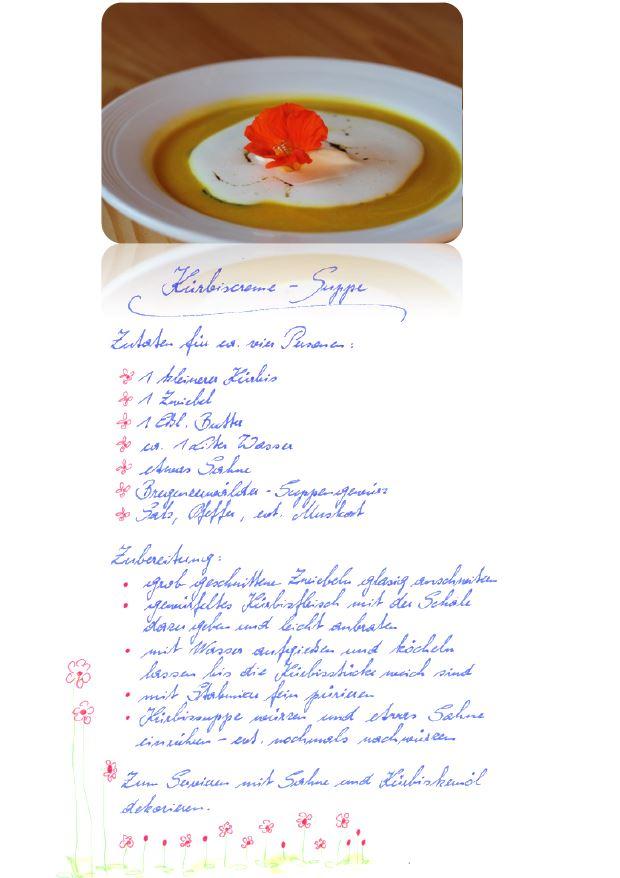 Kürbiscreme - Suppe
Zutaten für ca. vier Personen:
1 kleinerer Kürbis
1 Zwiebel
1 Eßl. Butter
ca. 1 Liter Wasser
etwas Sahne
Bregenzerwälder - Suppengewürz
Salz, Pfeffer, evt. Muskat
Zubereitung:
grob geschnittene Zwiebeln glasig anschwitzen
gewürfeltes Kürbisfleisch mit der Schale
dazu geben und leicht anbraten
mit Wasser aufgießen und köcheln
lassen bis die Kürbisstücke weich sind
mit Stabmixer fein pürieren
Kürbissuppe würzen und etwas Sahne
einrühren - evt. nochmals nachwürzen
Zum Servieren mit Sahne und Kürbiskernöl
dekorieren.